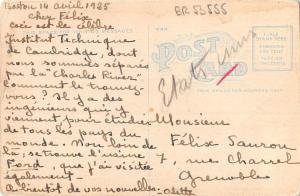 Boston 14 avril 1925
BR 53555
Cher Félix
ceci est le célèbre
Institut Technique
de Cambridge, dont
nous sommes séparés
par la "Charles River".
Comment le trouvez
vous? Il y a des
ingénieurs qui y
viennent pour étudier
de tous les pays du
monde. Non loin de
là, se trouve l'usine
Ford, que j'ai visitée
également.
A bientôt de vos nouvelles. Odette
POST CARD
PLACE
STAMP
HERE
Etats Unis
Monsieur
Félix Sauron
7, rue Charrel
Grenoble